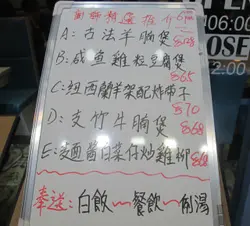 精選推介
A:古法羊腩煲 $128
B:咸魚雞粒豆腐煲
$65
C:紐西蘭羊架配炸帶子
$70
D:支竹牛腩煲 $68
E:麵醬白菜仔炒雞柳 $68
奉送:白飯~餐飲~例湯
06:00
OSE
2:00